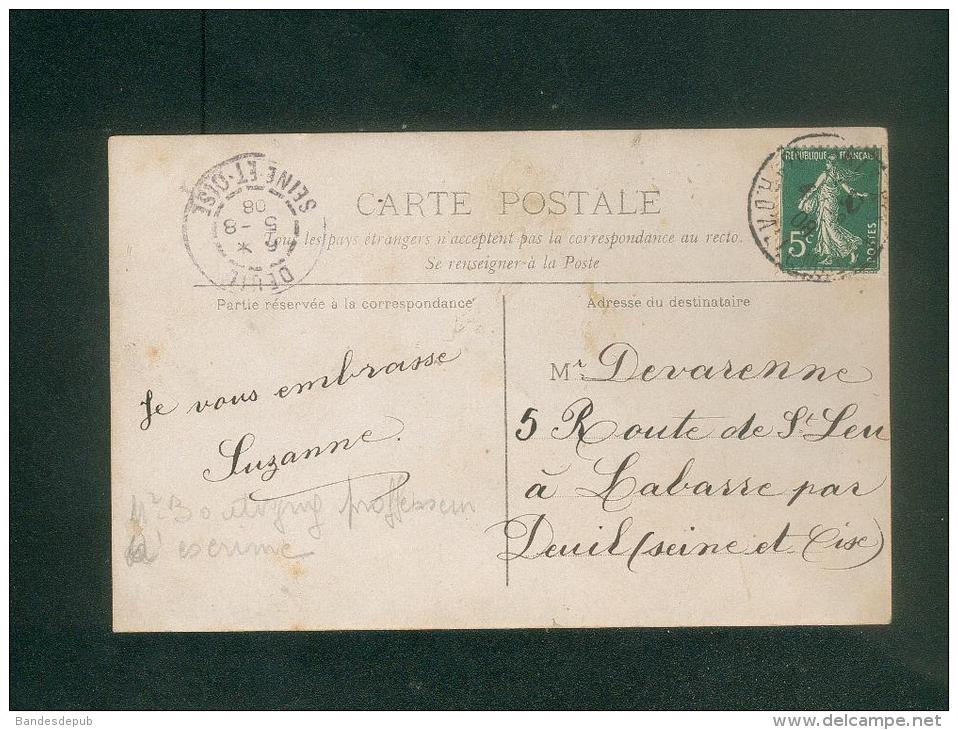 CARTE POSTALE
Tous les pays étrangers n'acceptent pas la correspondance au recto.
Se renseigner à la Poste
Partie réservée à la correspondance
Adresse du destinataire
RÉPUBLIQUE FRANÇAISE
5c
POSTES
DEUIL
SEINE-ET-OISE
6 *
5 -8
08
Je vous embrasse
Suzanne.
Mr proffesseur
d'escrime
Mr. Devarenne
5 Route de St Leu
à Labarre par
Deuil (seine et Oise)
Bandesdepub
www.delcampe.net